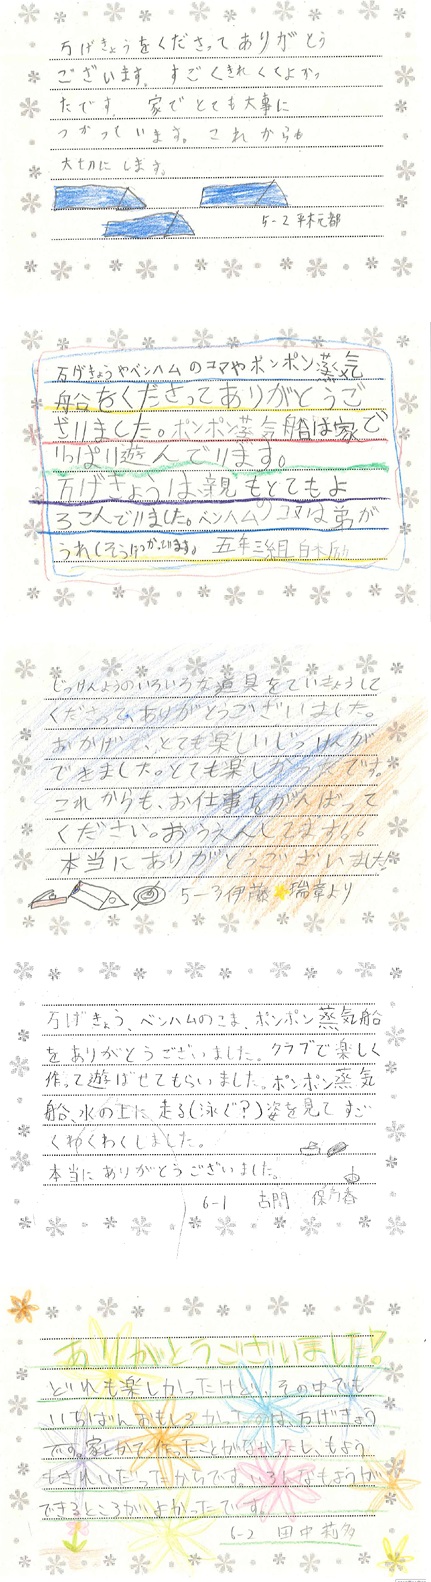 万げきょうをくださって ありがとう
ございます。すごくきれくてよかっ
たです。家でとても大事に
つかっています。これからも
大切にします。
5-2 平木元都
万げきょうやベンハムのコマやポンポン蒸気
船をくださってありがとうご
ざいました。ポンポン蒸気船は家で
いっぱい遊んでいます。
万げきょうは親もとてもよ
ろこんでいました。ベンハムのコマは弟が
うれしそうにつかっています。五年三組
じっけんようのいろいろな道具をていきょうして
くださって、ありがとうございました。
おかげで、とても楽しいじっけんが
できました。とても楽しかったです。
これからも、お仕事をがんばって
ください。おうえんしてます。
本当にありがとうございました!
5-3 伊藤 瑞幸より
万げきょう、ベンハムのこま、ポンポン蒸気船
をありがとうございました。クラブで楽しく
作って遊ばせてもらいました。ポンポン蒸気
船、水の上に走る(泳ぐ?)姿を見てすご
くわくわくしました。
本当にありがとうございました。
6-1 古門
ありがとうございました!
どれも楽しかったけど、その中でも
いちばんおもしろかったのは、万げきょう
です。家とかで作ったことがなかったし、もよう
もきれいだったからです。いろんなもようが
できるところがよかったです。
6-2 田中